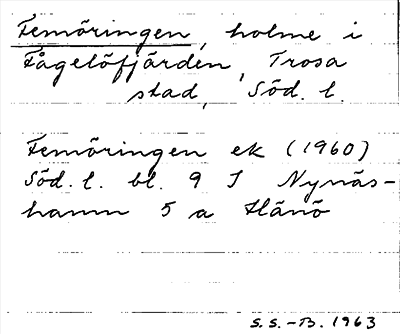 Femöringen, holme i
Fågelöfjärden, Trosa
stad, Söd. l.
Femöringen ek (1960)
Söd. l. bl. 9 I Nynäs-
hamn 5 a Hånö
S.S.-B. 1963